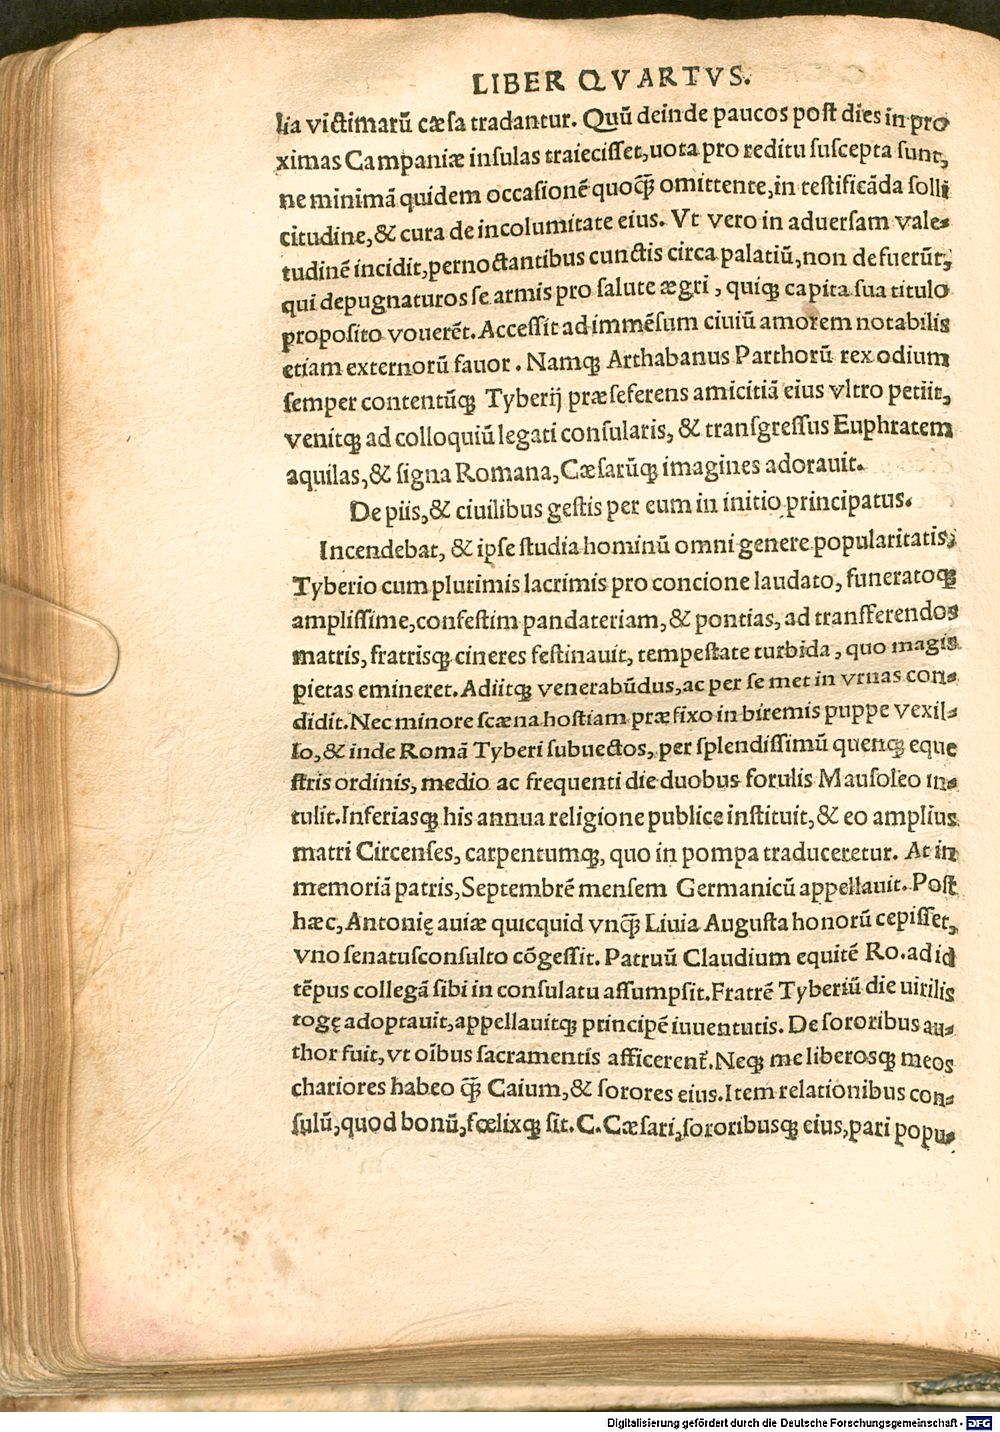 LIBER QVARTVS.
lia victimarũ cæsa tradantur. Quũ deinde paucos post dies in pro
ximas Campaniæ insulas traiecisset,uota pro reditu suscepta sunt,
ne minimã quidem occasionẽ quoqꝫ̃ omittente,in testificãda solli
citudine,& cura de incolumitate eius. Vt vero in aduersam vale-
tudinẽ incidit,pernoctantibus cunctis circa palatiũ,non defuerũt,
qui depugnaturos se armis pro salute ægri, quiqꝫ capita sua titulo
proposito vouerẽt. Accessit ad immẽsum ciuiũ amorem notabilis
etiam externorũ fauor. Namqꝫ Arthabanus Parthorũ rex odium
semper contentũqꝫ Tyberij præseferens amicitiã eius vltro petiit,
venitqꝫ ad colloquiũ legati consularis, & transgressus Euphratem
aquilas,& signa Romana,Cæsarũqꝫ imagines adorauit.
De piis,& ciuilibus gestis per eum in initio principatus.
Incendebat, & ipse studia hominũ omni genere popularitatis,
Tyberio cum plurimis lacrimis pro concione laudato, funeratoqꝫ
amplissime,confestim pandateriam,& pontias, ad transferendos
matris, fratrisqꝫ cineres festinauit, tempestate turbida, quo magis
pietas emineret. Adiitqꝫ venerabũdus,ac per se met in vrnas con-
didit. Nec minore scæna hostiam præfixo in biremis puppe vexil-
lo,& inde Romã Tyberi subuectos, per splendissimũ quenqꝫ eque
stris ordinis, medio ac frequenti die duobus forulis Mausoleo in-
tulit. Inferiasqꝫ his annua religione publice instituit,& eo amplius
matri Circenses, carpentumqꝫ, quo in pompa traduceretur. At in
memoriã patris,Septembrẽ mensem Germanicũ appellauit. Post
hæc, Antonię auiæ quicquid vnqꝫ̃ Liuia Augusta honorũ cepisset,
vno senatusconsulto cõgessit. Patruũ Claudium equitẽ Ro.ad id
tẽpus collegã sibi in consulatu assumpsit. Fratrẽ Tyberiũ die uirilis
togę adoptauit,appellauitqꝫ principẽ iuuentutis. De sororibus au-
thor fuit, vt oĩbus sacramentis afficerent᷑. Neqꝫ me liberosqꝫ meos
chariores habeo qꝫ̃ Caium,& sorores eius. Item relationibus con-
sulũ,quod bonũ,fœlixqꝫ sit. C. Cæsari,sororibusqꝫ eius,pari popu-
Digitalisierung gefördert durch die Deutsche Forschungsgemeinschaft - DFG